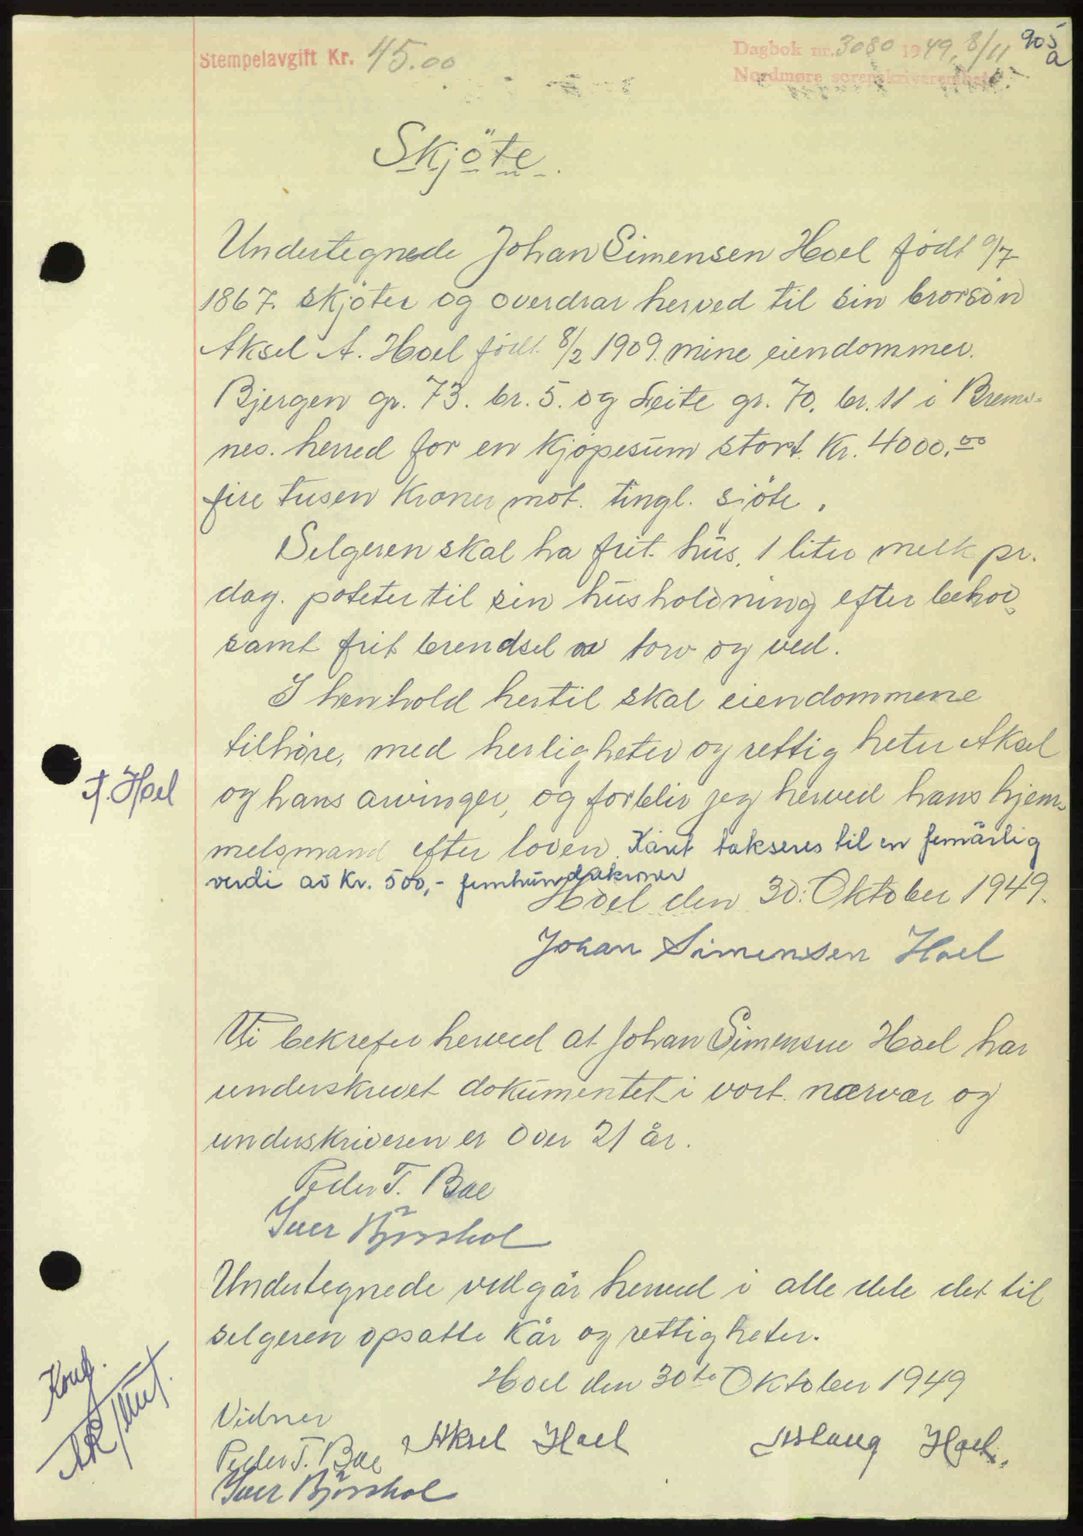 Stempelavgift Kr. 45.00
Dagbok nr. 3080 1949, 8/11
905 a
Nordmøre sorenskriverembete
Skjöte.
Undertegnede Johan Simensen Hoel født /7
1867. skjöter og overdrar herved til sin brorsön
Aksel A. Hoel født 8/2 1909. mine eiendommer.
Bjergen gr. 73. br. 5. og Leite gr. 70. br. 11 i Brems-
nes. herred for en kjöpesum stort. Kr. 4000.00
fire tusen kroner mot. tingl. sjöte.
Selgeren skal ha frit. hus, 1 liter melk pr.
dag. poteter til sin husholdning efter behov,
samt frit brendsel av torv og ved.
I henhold hertil skal eiendommene
tilhöre, med herligheter og rettigheter Aksel
A. Hoel
og hans arvinger, og forblir jeg herved hans hjem-
melsmand efter loven. Kåret takseres til en femårlig
verdi av Kr. 500,- femhundrekroner
Hoel den 30. Oktober 1949.
Johan Simensen Hoel
Vi bekrefter herved at Johan Simensen Hoel har
underskrevet dokumentet i vort nærvær og
underskriveren er over 21 år.
Peder T. Bae
Iver Bjørshol
Undertegnede vedgår herved i alle dele det til
selgeren opsatte kår og rettigheter.
Hoel den 30te Oktober 1949
Konf.
Vidner
Aksel Hoel Aslaug Hoel.
Peder T. Bae
Iver Bjørshol